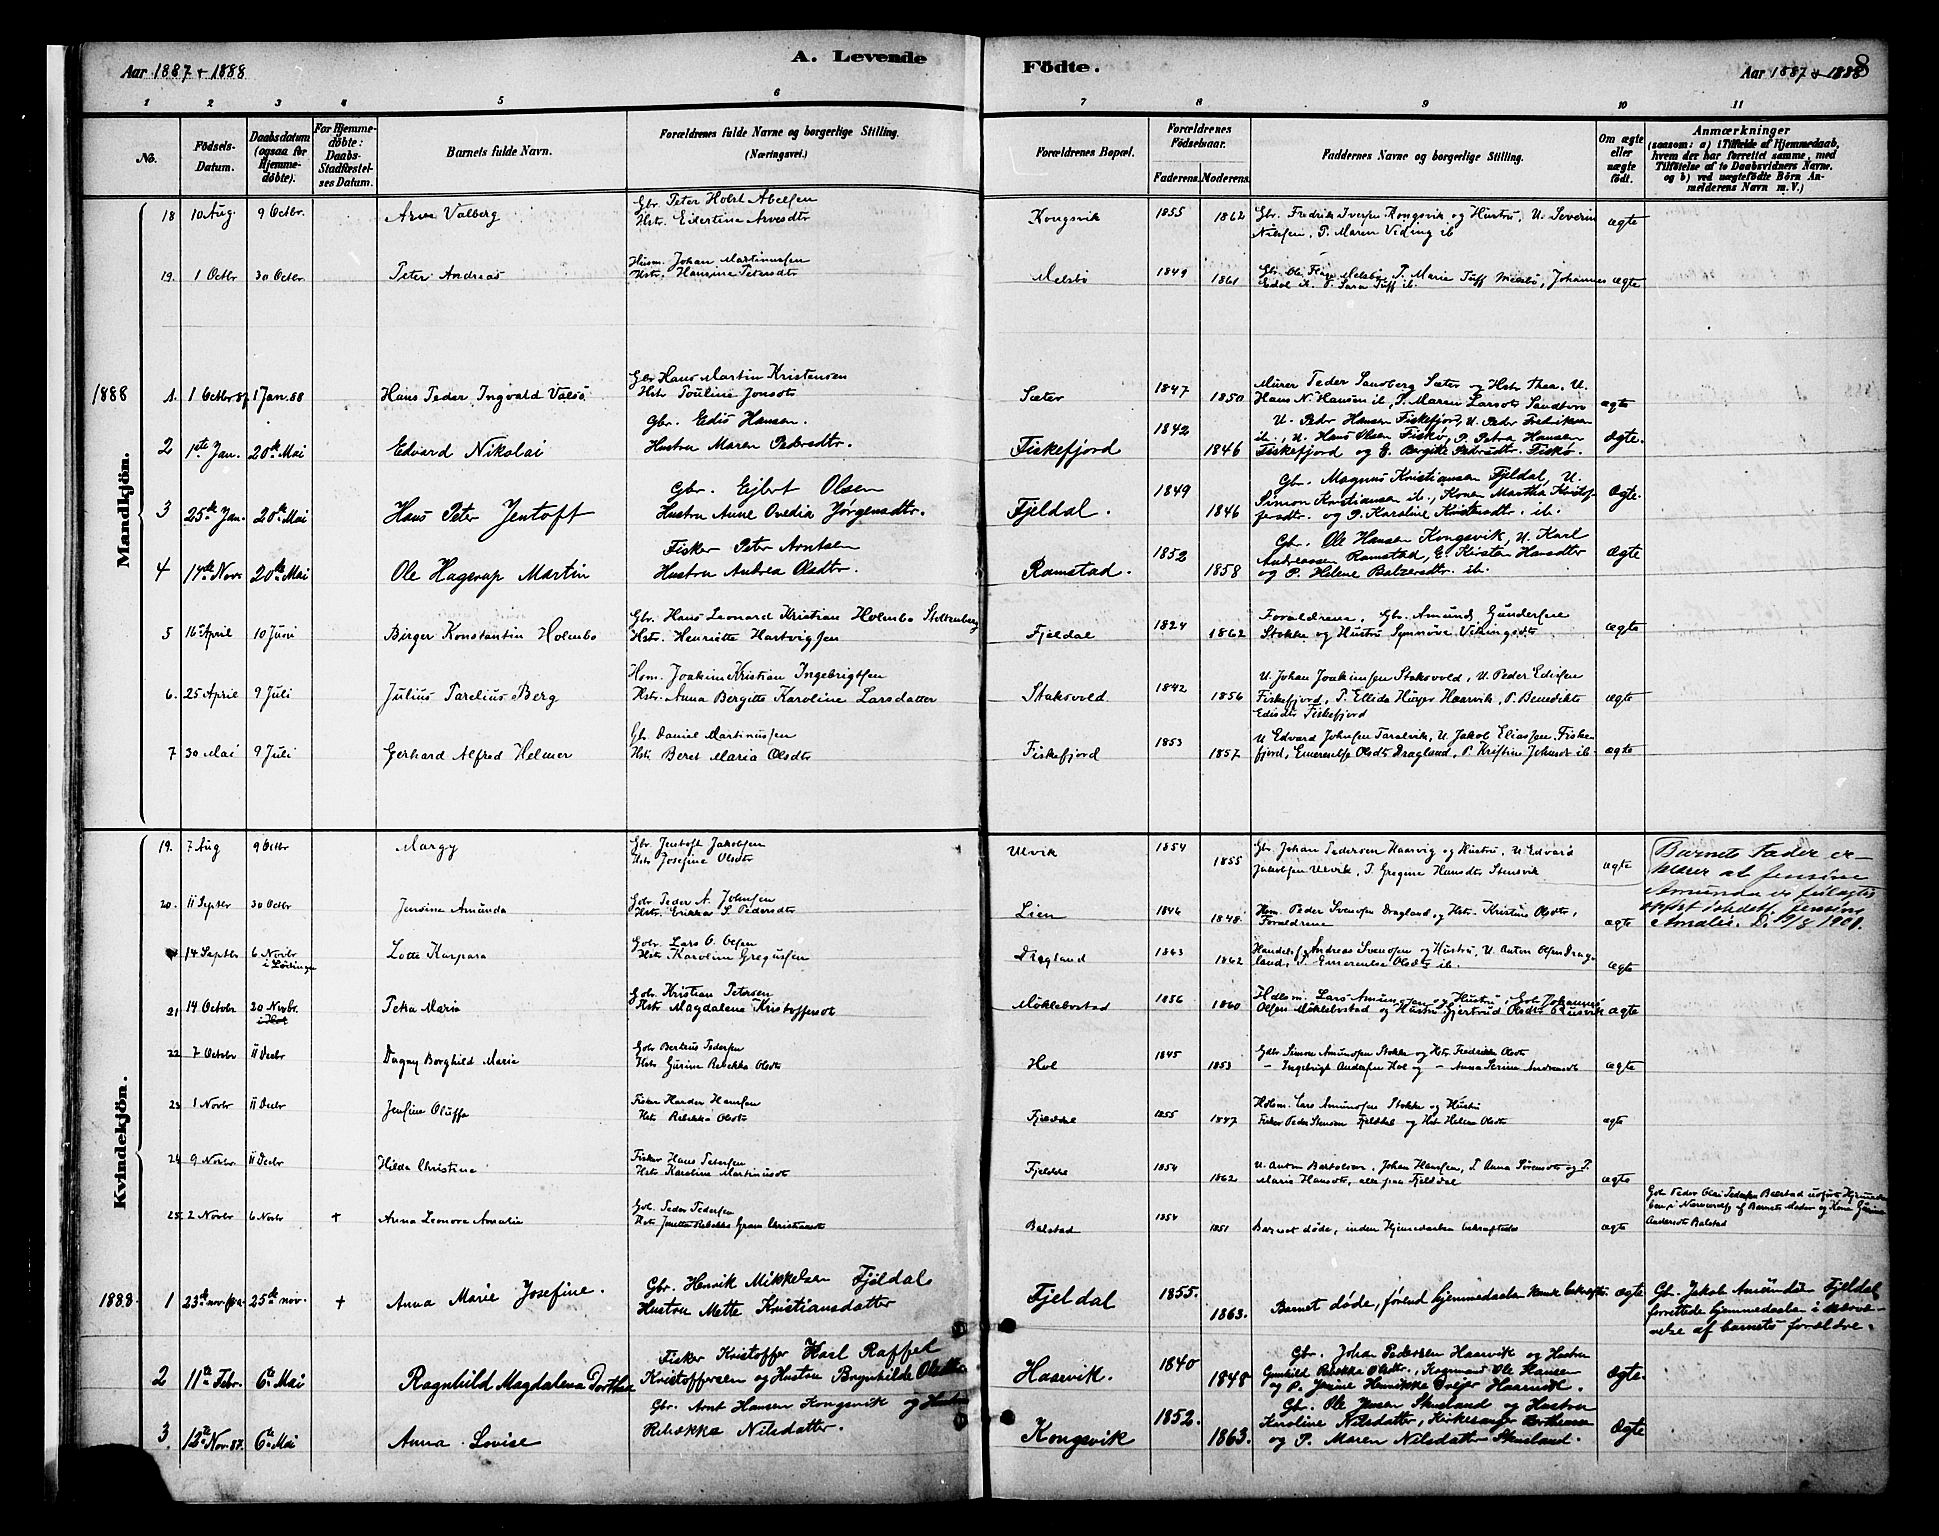 Aar 1887 + 1888
A. Levende
Födte.
Aar 1887 + 1888
8
1 2 3 4 5 6 7 8 9 10 11
No.
Födsels-Datum.
Daabsdatum (ogsaa for Hjemme-döbte).
For Hjemme-döbte: Daabs-Stadfæstel-ses Datum.
Barnets fulde Navn.
Forældrenes fulde Navne og borgerlige Stilling. (Næringsvei.)
Forældrenes Bopæl.
Forældrenes Födselsaar.
Faderens. Moderens.
Faddernes Navne og borgerlige Stilling.
Om ægte eller uægte födt.
Anmærkninger
(saasom: a) i Tilfælde af Hjemmedaab, hvem der har forrettet samme, med Tilföielse af to Daabsvidners Navne. og b) ved uægtefödte Börn An-melderens Navn m. V.)
Mandkjön.
18 10 Aug. 9 Octbr. Arve Valberg
Gbr. Peter Holst Abelsen
Hstr. Edertine Arvesdtr
Kongsvik 1855 1862
Gbr. Fredrik Iversen Kongsvik og Hustru, U. Severin
Nilssen, P. Maren Viding ib
ægte
19. 1 Octbr 30 Octbr Peter Andreas
Husm. Johan Martinussen
Hstr. Hansine Petersdtr
Melsbö 1849 1861
Melsbö, P. Marie Tuff Melsbö, Johannes
P. Sara Tuff ib.
ægte
1888 1. 1 Octbr 87 1 Jan. 88 Hans Peder Ingvald Valsö
Gbr Hans Martin Kristensen
Hstr Pouline Jonsdtr
Sæter 1847 1850
Murer Peder Sandberg Sæter og Hstr Thea, U.
Hans N. Hansen ib, P. Maren Larsdtr Sandtorv
ægte
2 1ste Jan. 20de Mai Edvard Nikolai
Gbr. Edis Hansen.
Hustru Maren Pedersdtr.
Fiskefjord 1842 1846
U. Peder Hansen Fiskefjord, U. Peder Fredriksen
ib., U. Hans Olsen Fiskö, P. Petra Hansen
Fiskefjord og E. Bergitte Pedersdtr. Fiskö.
Ægte.
3 25de Jan. 20de Mai Hans Peter Jentoft
Gbr. Ejlert Olsen
Hustru Anne Ovedia Jørgensdtr.
Fjeldal. 1849 1846
Gbr. Magnus Kristiansen Fjeldal, U.
Simon Kristiansen ib., Konen Martha Kristof
fersdtr. og P. Karoline Kristensdtr. ib.
Ægte.
4 17de Novr 20de Mai Ole Hagerup Martin
Fisker Peter Arntsen
Hustru Andrea Olsdtr.
Ramstad. 1852 1858
Gbr. Ole Hansen Kongsvik, U. Karl
Andreassen Ramstad, E. Kirsten Hansdtr
og P. Helene Balzersdtr. ib.
Ægte
5 16 April 10 Juni Birger Konstantin Holmbo
Gbr. Hans Leonard Kristian Holmbo Stoltenberg
Hstr. Henriette Hartvigsen
Fjeldal 1824 1862
Forældrene, Gbr. Amund Gundersen
Stokke og Hustru Synnöve Vikingsdtr
ægte
6. 25 April 9 Juli Julius Parelius Berg
Hom. Joakim Kristian Ingebrigtsen
Hstr. Anna Bergitte Karoline Larsdatter
Staksvold 1842 1856
U. Johan Joakimsen Staksvold, U. Peder Edissen
Fiskefjord, P. Ellida Haarvik, P. Benedikte
Edisdtr Fiskefjord
ægte
7 30 Mai 9 Juli Gerhard Alfred Helmer
Gbr Daniel Martinussen
Hstr Beret Maria Olsdtr
Fiskefjord 1853 1857
U Edvard Johnsen Taralvik, U. Jakob Eliassen Fiske-
fjord, Emerentse Olsdtr Dragland, P. Kristine Johnsdtr ib
ægte
Kvindekjön.
19. 7 Aug 9 Octbr Margy
Gbr Jentoft Jakobsen
Hstr Josefine Olsdtr
Ulvik 1854 1855
Gbr. Johan Pedersen Haarvig og Hustru, U. Edvard
Jakobsen Ulvik, P. Gregine Hansdtr Stensvik
ægte
Barnets Fader er-
klærer at Jensine
Amunda er feilagtig
opført isteden Jensine
Amalie. D. 1901.
20. 11 Septbr 30 Octbr Jensine Amunda
Gbr. Peder A. Johnsen
Hstr. Erikka S. Pedersdtr
Lien 1846 1848
Hom. Peder Svensen Dragland og Hstr. Kristine Olsdtr,
Forældrene
ægte
14 Septbr 6 Novbr i Lödingen Lotte Kaspara
Gbr. Lars O. Olsen
Hstr Karoline Gregussen
Dragland 1863 1862
Handelsf. Andreas Svendsen og Hustru, U. Anton Olsen Drag-
land, P. Emerentse Olsdtr ib.
ægte
21 14 Octobr 20 Novbr. i Hol Petra Marie
Gbr. Kristian Petersen
Hstr Magdalene Kristoffersdtr
Möklebostad 1856 1860
Hdlsm. Lars Amundsen og Hustru, Gbr Johannes
Olsen Möklebostad og Hustru Gjertrud Olsdtr
ægte
22 7 Octobr 11 Decbr Dagny Borghild Marie
Gbr Berteus Pedersen
Hstr Gurine Rebekka Olsdtr
Hol 1845 1853
Gbr Simon Amundsen Stokke og Hstr Fredrikke Olsdtr
– Ingebrigt Andersen Hol og – Anna Serine Andreasdtr
ægte
23 1 Novbr 11 Decbr Jensine Oluffa
Fisker Harder Hansen
Hstr Rebekka Olsdtr
Fjelddal 1855 1847
Hdlsm. Lars Amundsen Stokke og Hustru
Fisker Peder Stensen Fjelddal og Hstr Helene Olsdtr
ægte
24 9 Novbr 11 Decbr Hilda Christine
Fisker Hans Petersen
Hstr Karoline Martinusdtr
Fjelddal 1854 1862
U. Anton Bartolsen, Johan Hansen, P. Anna Sörensdtr og P.
Marie Hansdtr, alle paa Fjelddal
ægte
25 2 Novbr 6 Novbr + Anna Leonora Amalia
Gbr. Peder Pedersen
Hstr Jenette Rebekka Gram Christiansdtr
Balstad 1854 1851
Barnet döde, inden Hjemmedaaben bekræftedes
ægte
Gbr Peder Olai Pedersen Balstad udförte Hjemmedaa-
ben i Nærværelse af Barnets Moder og Kone Gurine
Andersdtr Balstad
1888. 1 23de nov. 25de nov. + Anna Marie Josefine.
Gbr. Henrik Mikkelsen Fjeldal
Hustru Mette Kristiansdatter
Fjeldal 1855. 1863.
Barnet døde, førend hjemmedaaben kunde bekræftes.
Ægte
Gb. Jakob Amundsen Fjeldal
forrettede hjemmedaaben i nærvæ-
relse af barnets forældre.
2 11te Febr. 6te Mai Ragnhild Magdalena Dorthea
Fisker Kristoffer Karl Raffel
Kristoffersen og Hustru Bragnhilde Olsdtr
Haarvik. 1840 1848
Gbr. Johan Pedersen Haarvik og Hustru
Gunhild Rebekka Olsdtr., Kogmand Ole Hansen
og P. Jensine Henrikke Dreyer Haarvik.
Ægte.
3. 12te Nov. 87. 6te Mai Anna Lovise
Gbr. Arnt Hansen Kongsvik og Hustru
Rebekka Nilsdatter.
Kongsvik 1852. 1863.
Gbr. Ole Jensen Skusland og Hustru
Karoline Nilsdatter, Kirkesanger Berthinsen
og P. Maren Nilsdatter Skusland.
Ægte